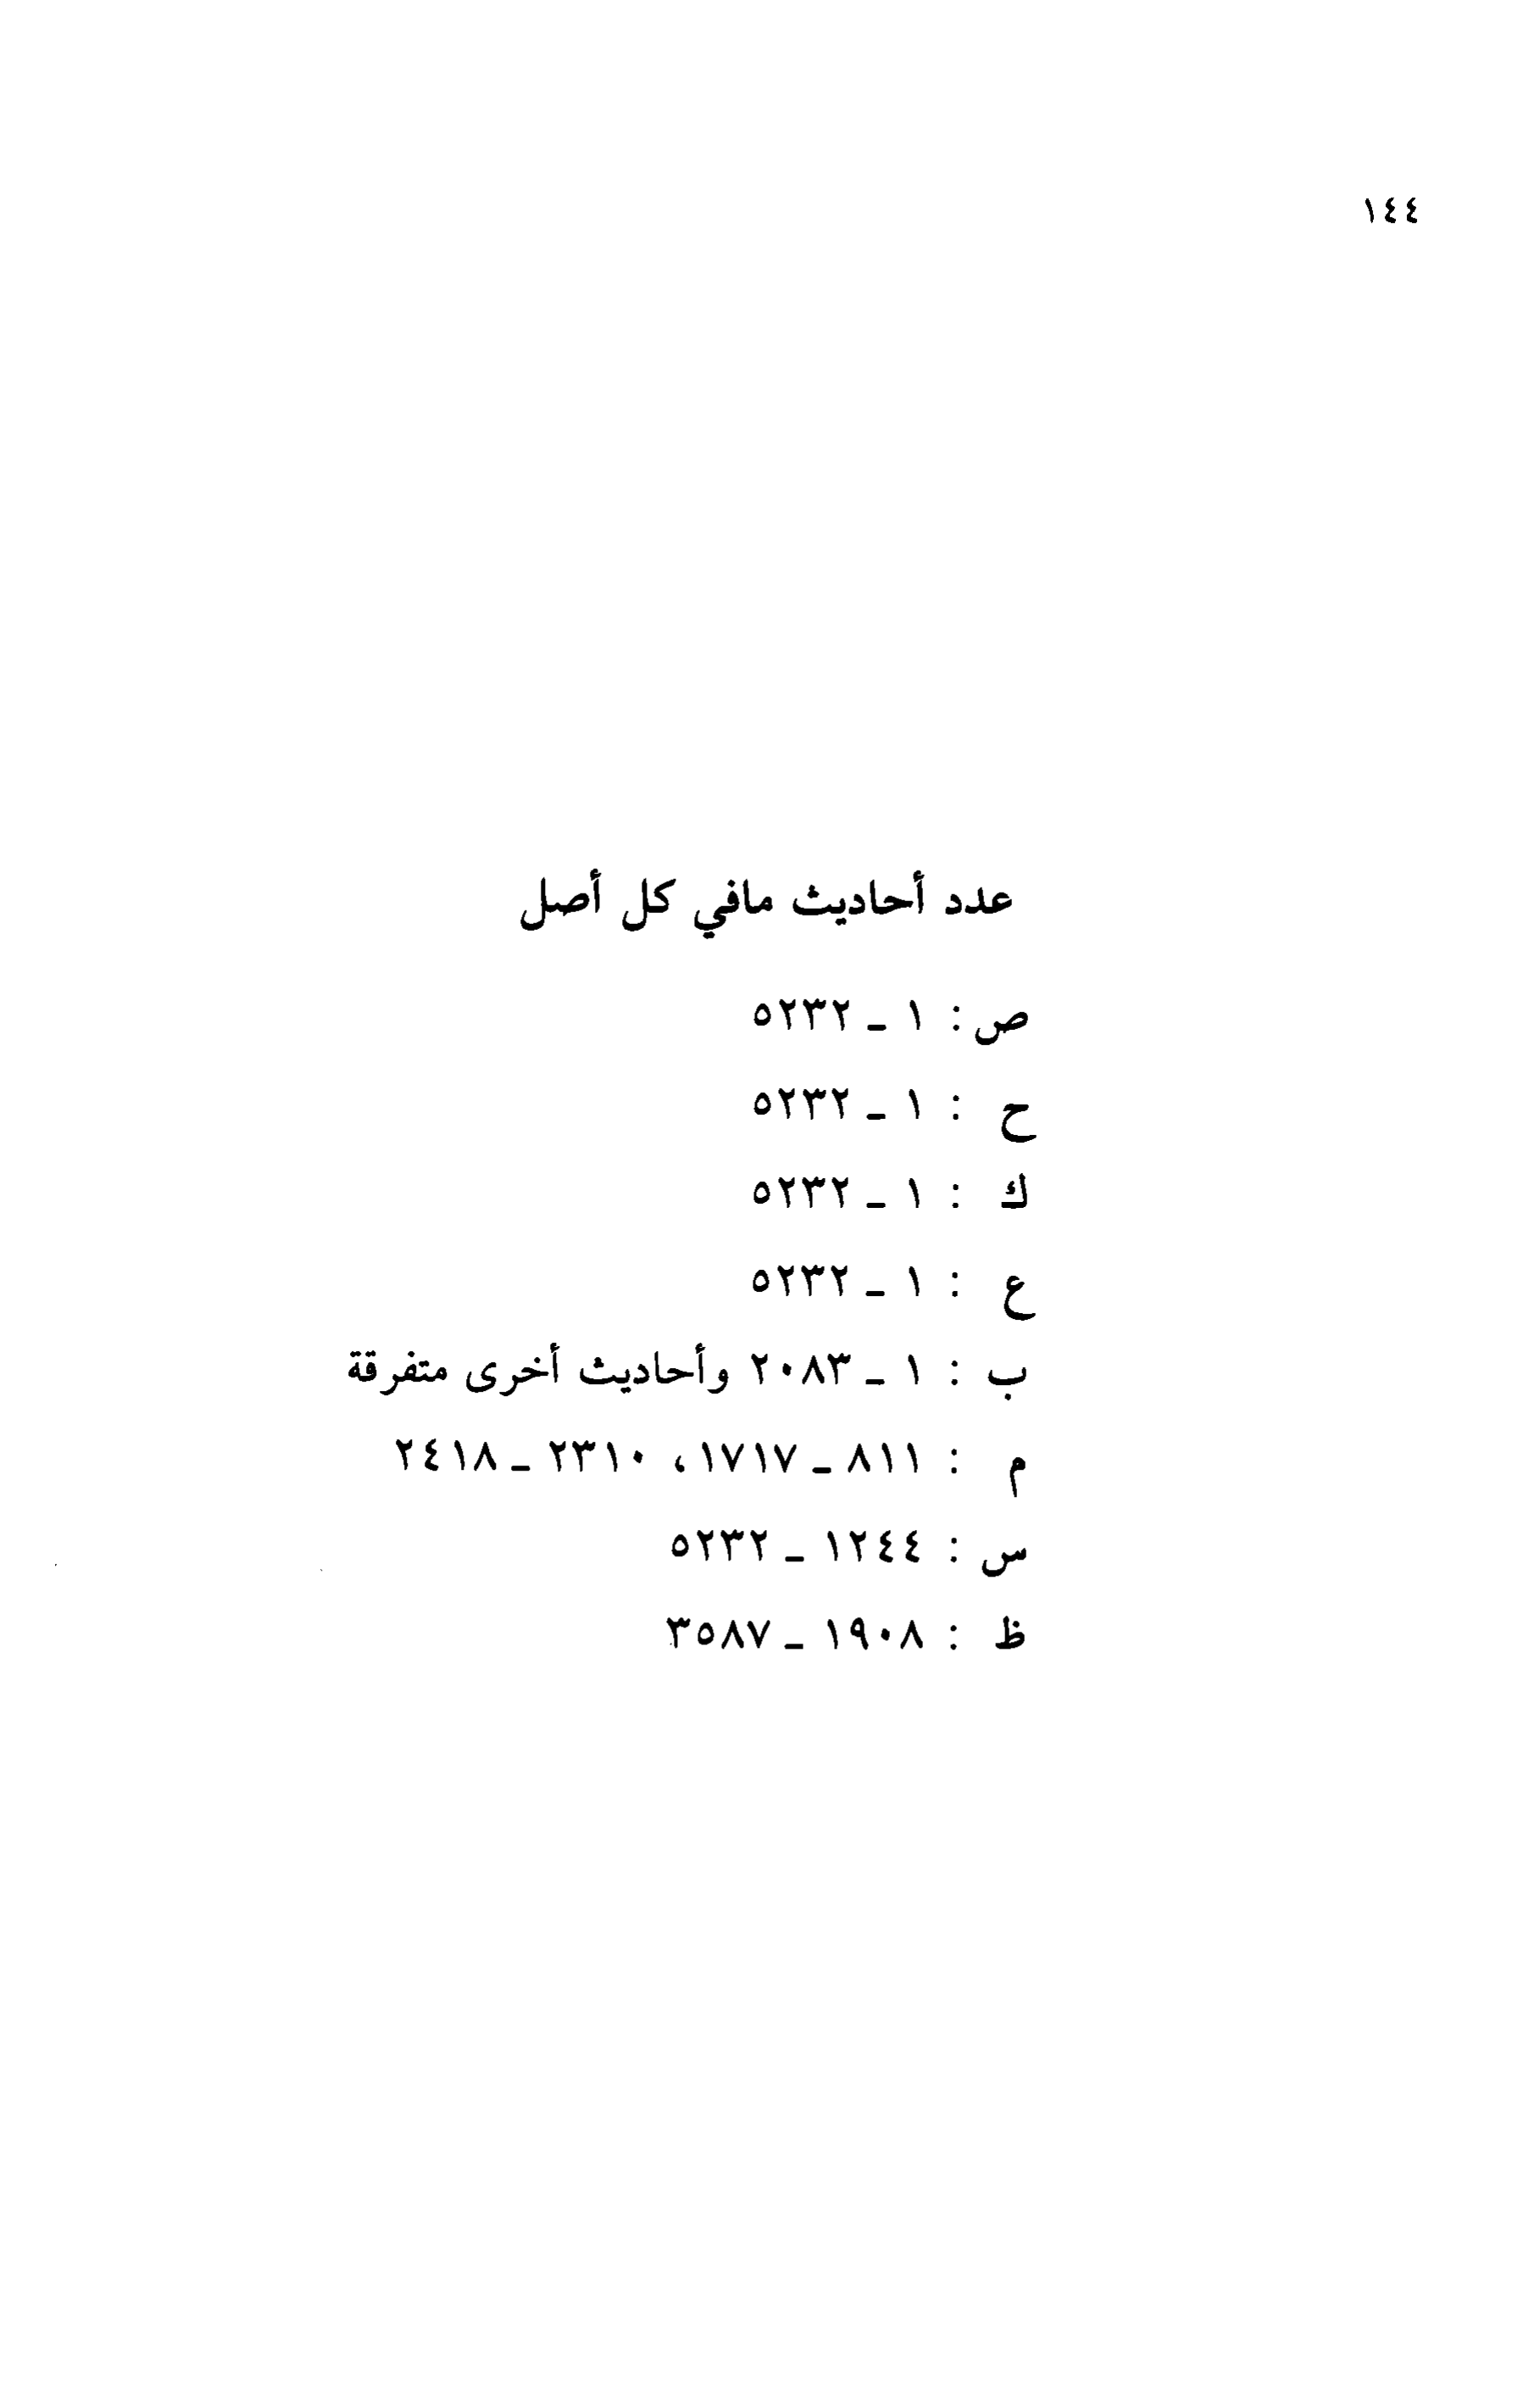 ١٤٤
عدد أحاديث مافي كل أصل
ص : ١ ـ ٥٢٣٢
ح : ١ ـ ٥٢٣٢
ك : ١ ـ ٥٢٣٢
ع : ١ ـ ٥٢٣٢
ب : ١ ـ ٢٠٨٣ وأحاديث أخرى متفرقة
م : ٨١١ ـ ١٧١٧، ٢٣١٠ ـ ٢٤١٨
س : ١٢٤٤ ـ ٥٢٣٢
ظ : ١٩٠٨ ـ ٣٥٨٧